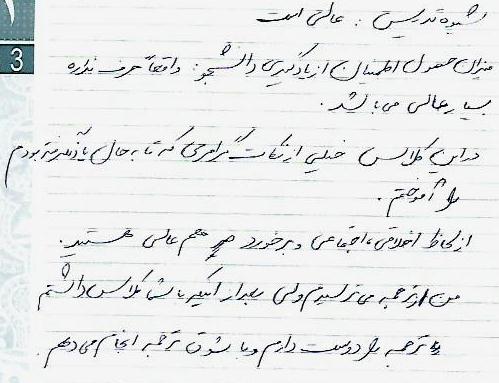 شیوه تدریس: عالی است
میزان حصول اطمینان از یادگیری دانشجو: واقعاً حرف نداره
بسیار عالی می باشد.
در این کلاس خیلی از نکات گرامری که تا به حال یاد نگرفته بودم
را آموختم.
از لحاظ اخلاقی، اجتماعی و برخورد هم عالی هستید.
من از ترجمه می ترسیدم ولی بعد از اینکه با شما کلاس داشتم
ترجمه را دوست دارم و با شوق ترجمه انجام می دهم.
3